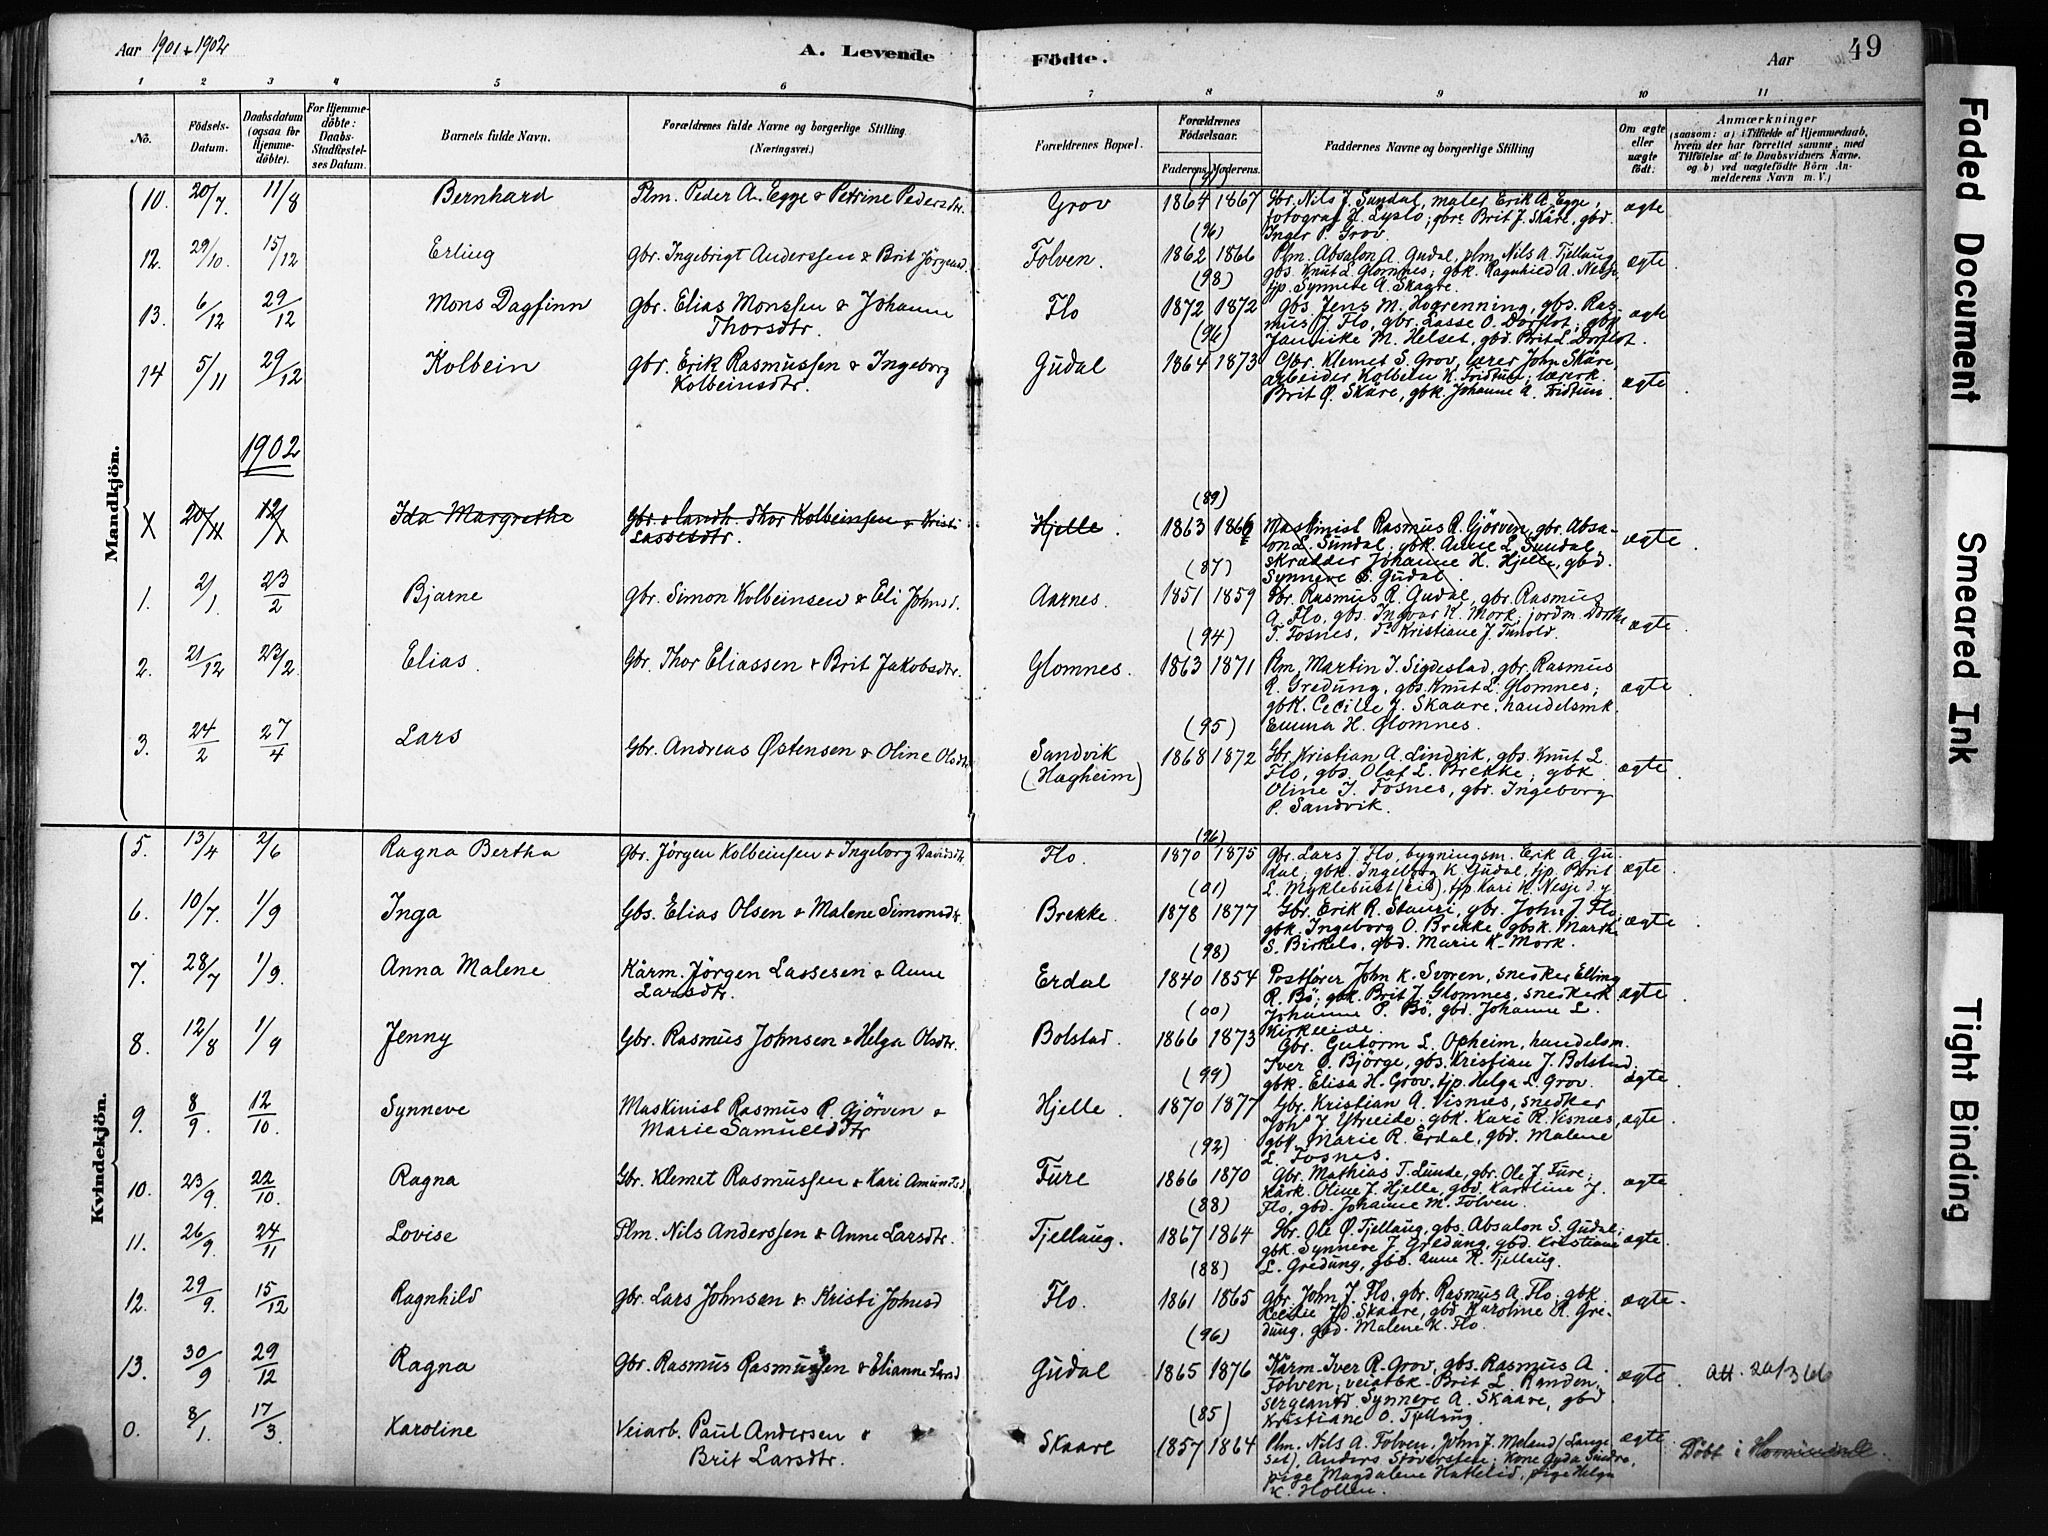 Aar 1901 + 1902
A. Levende Födte.
Aar
49
1 2 3 4 5 6 7 8 9 10 11
No.
Födsels-Datum.
Daabsdatum (ogsaa for Hjemme-döbte).
For Hjemme-döbte: Daabs-Stadfæstel-ses Datum.
Barnets fulde Navn.
Forældrenes fulde Navne og borgerlige Stilling (Næringsvei.)
Forældrenes Bopæl.
Forældrenes Födselsaar.
Faderens. Moderens.
Faddernes Navne og borgerlige Stilling
Om ægte eller uægte födt.
Anmærkninger
(saasom: a) i Tilfælde af Hjemmedaab, hvem der har forrettet samme, med Tilföielse af to Daabsvidners Navne. og b) ved uægtefödte Börn An-melderens Navn m. V.)
Mandkjön.
10. 20/7. 11/8 Bernhard Plm. Peder A. Egge & Petrine Pedersdtr. Grov 1864 1867 Gbr. Nils J. Sundal, maler Erik A. Egge, ægte
fotograf H. Lyslo; gbre Brit J. Skåre, gbd.
(96) Inger P. Grov.
12. 29/10. 15/12 Erling gbr. Ingebrigt Anderssen & Brit Jörgensd. Folven. 1862 1866 Plm. Absalon A. Gudal, plm. Nils A. Tjellaug, ægte.
gbs. Knut L. Glomnes; gbk. Ragnhild A. Nesje,
(98) tjp. Synneve A. Skaare.
13. 6/12 29/12 Mons Dagfinn gbr. Elias Monssen & Johanne Thorsdtr. Flo 1872 1872 Gbs. Jens M. Hogrenning, gbs. Ras- ægte
mus J. Flo, gbr. Lasse O. Dorflot; gbk.
(96) Jannike M. Helset, gbd. Brit L. Dorflot.
14 5/11 29/12 Kolbein gbr. Erik Rasmussen & Ingeborg Kolbeinsdtr. Gudal 1864 1873 Gbr. Klemet S. Grov, lærer John Skåre, ægte
arbeider Kolbein K. Fridtun; lærerk.
Brit Ø. Skåre, gbk. Johanne A. Fridtun.
1902
(89)
X 20/X 12/X Ida Margrethe Gbr. & landh. Thor Kolbeinsen & Kristi Lassesdtr. Hjelle. 1863 1866 Maskinist Rasmus R. Gjörven, gbr. Absa- ægte.
lon L. Sundal; gbk. Anne L. Sundal
Skrædder Johanne H. Hjelle, gbd.
(87) Synneve S. Gudal.
1. 2/1. 23/2 Bjarne gbr. Simon Kolbeinsen & Eli Johnsd. Aarnes. 1851 1859 Gbr. Rasmus R. Gudal, gbr. Rasmus ægte.
A. Flo, gbs. Ingvar K. Mork; jordm. Dorthe
(94) T. Fosnes, do Kristiane J. Tunold.
2. 21/12 23/2 Elias. Gbr. Thor Eliassen & Brit Jakobsdtr. Glomnes. 1863 1871 Plm. Martin J. Sigdestad, gbr. Rasmus ægte.
R. Gredung, gbs. Knut L. Glomnes;
gbk. Cecilie J. Skaare, handelsmk.
(95) Emma H. Glomnes.
3. 24/2 27/4 Lars Gbr. Andreas Østensen & Oline Olsdtr. Sandvik (Hagheim) 1868 1872 Gbr. Kristian A. Lindvik, gbs. Knut L. ægte.
Flo, gbs. Olaf L. Brekke; gbk.
Oline J. Fosnes, gbd. Ingeborg
P. Sandvik.
Kvindekjön.
(96)
5. 13/4 2/6 Ragna Bertha Gbr. Jörgen Kolbeinsen & Ingeborg Davidsdtr. Flo. 1870 1875 Gbr. Lars J. Flo, bygningsm. Erik A. Gu- ægte.
dal, gbk. Ingeborg K. Gudal, tjp. Brit
(01) L. Myklebust (Eid), tjp. Kari K. Nesje d.y
6. 10/7. 1/9 Inga Gbs. Elias Olsen & Malene Simonsdtr. Brekke. 1878 1877 Gbr. Erik R. Stauri, gbr. John J. Flo; ægte.
gbk. Ingeborg O. Brekke, gbsk. Marthe
(98) S. Birkelo, gbd. Marie K. Mork.
7. 28/7 1/9. Anna Malene Kårm. Jörgen Lassesen & Anne Larsdtr. Erdal 1840 1854 Postförer John K. Svoren, snedker Elling ægte.
R. Bö; gbk. Brit J. Glomnes, snedkerk
(00) Johanne P. Bö, gbd. Johanne L.
Kirkeeide.
8. 12/8 1/9 Jenny Gbr. Rasmus Johnsen & Helga Olsdtr. Bolstad. 1866 1873 Gbr. Gutorm L. Opheim, handelsm. ægte.
Iver O. Björge, gbs. Kristian J. Bolstad;
(99) gbk. Elisa H. Grov, tjp. Helga L. Grov.
9. 8/9. 12/10. Synneve Maskinist Rasmus R. Gjörven & Marie Samuelsdtr Hjelle. 1870 1877 Gbr. Kristian A. Visnes, snedker ægte.
Johs J. Ytreeide; gbk. Kari R. Visnes,
gbk. Marie R. Erdal, gbd. Malene
(92) L. Fosnes.
10. 23/9. 22/10. Ragna Gbr. Klemet Rasmussen & Kari Amundsd. Fure 1866 1870 Gbr. Mathias T. Lunde, gbr. Ole J. Fure; ægte
Kårk. Oline J. Hjelle, gbd. Karoline J.
(88) Flo, gbd. Johanne M. Folven.
11. 26/9. 24/11 Lovise Plm. Nils Anderssen & Anne Larsdtr. Tjellaug. 1867 1864 Gbr. Ole Ø. Tjellaug, gbs. Absalon S. Gudal; ægte.
gbk. Synneve J. Gredung, gbd. Kristiane
(88) L. Gredung, gbd. Anne R. Tjellaug.
12. 29/9. 15/12 Ragnhild gbr. Lars Johnsen & Kristi Johnsd Flo. 1861 1865 Gbr. John J. Flo, gbr. Rasmus A. Flo; gbk. ægte.
Cecilie Jd. Skaare, gbd. Karoline R. Gre-
(96) dung, gbd. Malene K. Flo.
13. 30/9 29/12 Ragna Gbr. Rasmus Rasmussen & Elianne Larsd Gudal 1865 1876 Kårm. Iver R. Grov, gbs. Rasmus A. ægte. att. 20/3 66
Folven; veiarbk. Brit L. Randen,
Sergeantd. Synneve A. Skaare, gbd.
(85) Kristiane O. Tjellaug.
0. 8/1. 17/3. Karoline Veiarb. Paul Andersen & Brit Larsdtr. Skaare 1857 1864 Plm. Nils A. Folven, John J. Meland (Lange- ægte Döbt i
set), Anders Störersten; Kone Gyda Sindre,
pige Magdalene Hattelid, pige Helga
K. Hollen.
Faded Document
Smeared Ink
Tight Binding